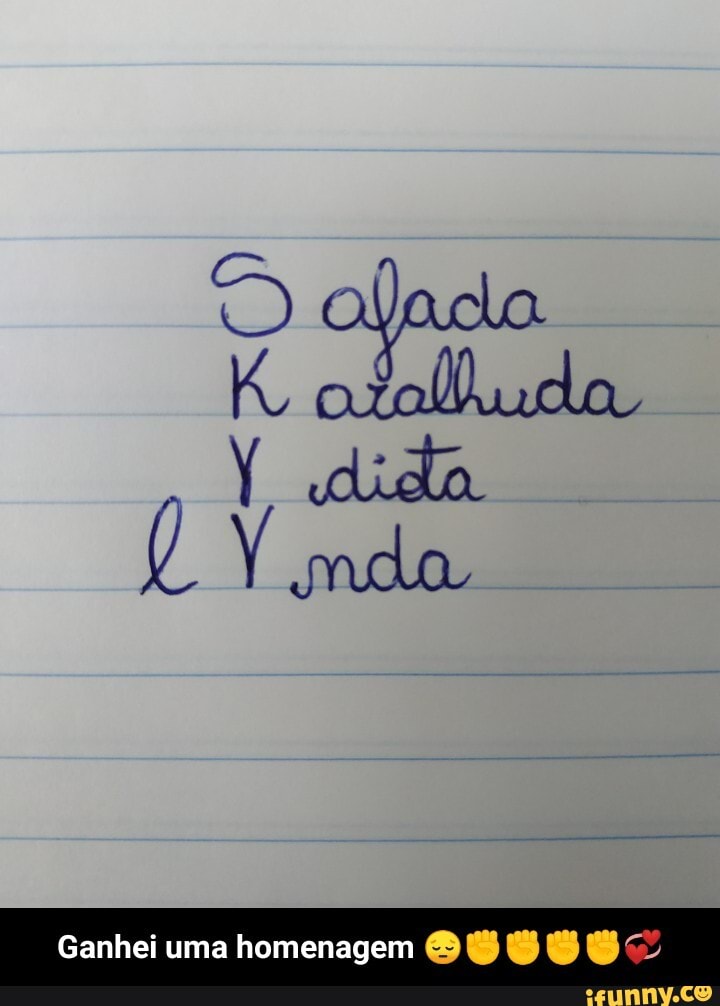 S afada
K aralhuda
Y diota
l Y nda
Ganhei uma homenagem 😔✊✊✊✊💞
ifunny.co